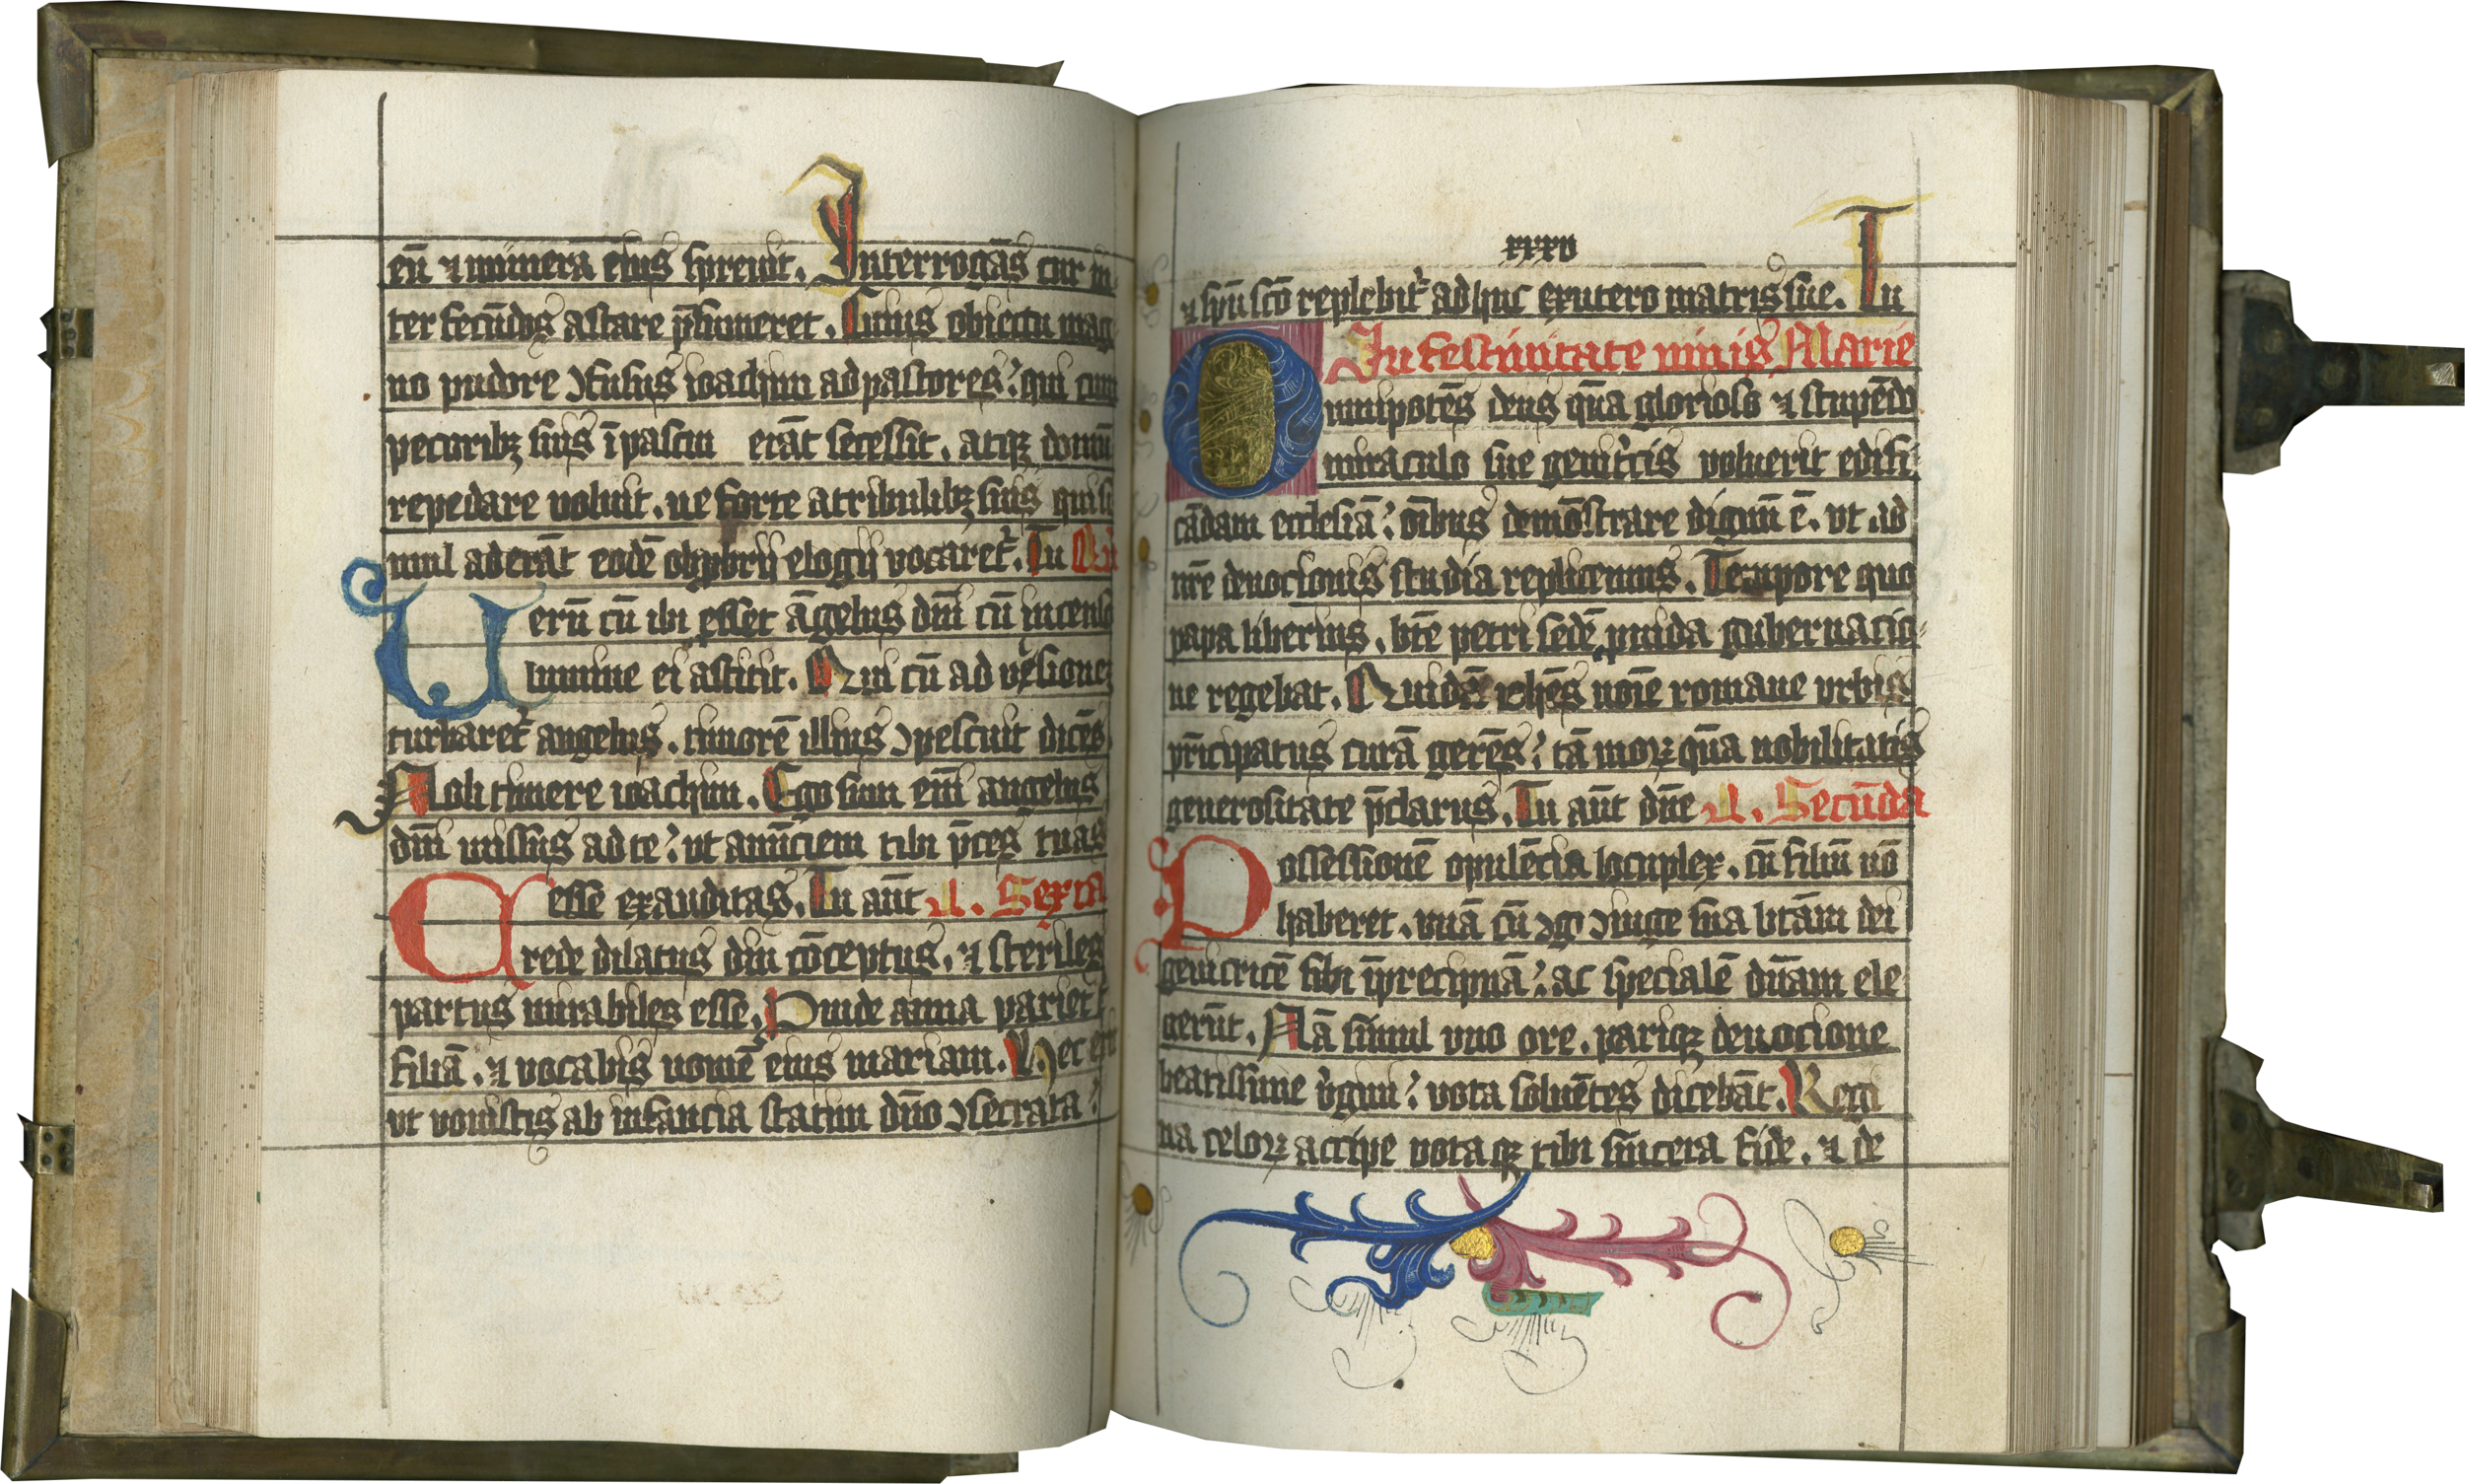 eū ⁊ munera eius spreuit. Interrogās cur in
ter fecūdos astare p̄sumeret. Cuius obiectu mag
no pudore ↄfusus ioachim ad pastores: qui cum
pecoribꝫ suis ī pascui erāt secessit. atqꝫ domū
repedare noluit. ne forte a tribulibꝫ suis qui si
mul aderāt eodē obprobrij elogij notaret᷑. Tu
Uerū cū ibi esset āgelus dn̄i cū incenso
lumine ei astitit. Qui cū ad visionē
turbaret᷑ angelus. timorē illius ↄpescuit dicēs
Noli timere ioachim. Ego sum em̄ angelus
dn̄i missus ad te: vt anūciem tibi p̄ces tuas
esse exauditas. Tu aūt L. Sexta
Crede dilatus diu cōceptus. ⁊ steriles
partus mirabiles esse. Proinde anna pariet
filiā. ⁊ vocabis nomē eius mariam. Hec erit
vt vouistis ab infancia statim dn̄o ↄsecrata:
xxxv
⁊ spū scō replebit᷑ adhuc ex utero matris sue. Tu
In festiuitate niuis Marie
Omnipotēs deus q̄ua glorioso ⁊ stupēdo
miraculo sue genitricis voluerit edifi
cādam ecclesiā: oībus demōstrare dignū ē. vt ad
nr̄e deuocionis studia replicemus. Tempore quo
papa liberius. bt̄e petri sedē prouida gubernacio
ne regebat. Quidā iohēs noīe romane vrbis
pr̄icipatus curā gerēs: tā morꝝ q̄ua nobilitatis
generositate p̄clarus. Tu aūt dn̄e L. Secūda
Possessionē opulēcia locuplex. cū filiū nō
haberet. vnā cū ↄgo ↄiuge sua btām dei
genitricē sibi ī precipuā: ac specialē dn̄am ele
gerūt. Nā simul vno ore. pariqꝫ deuocione
beatissime v̄gini: vota soluētes dicebāt. Regi
na celoꝝ accipe vota qꝫ tibi sīncera fide. ⁊ de